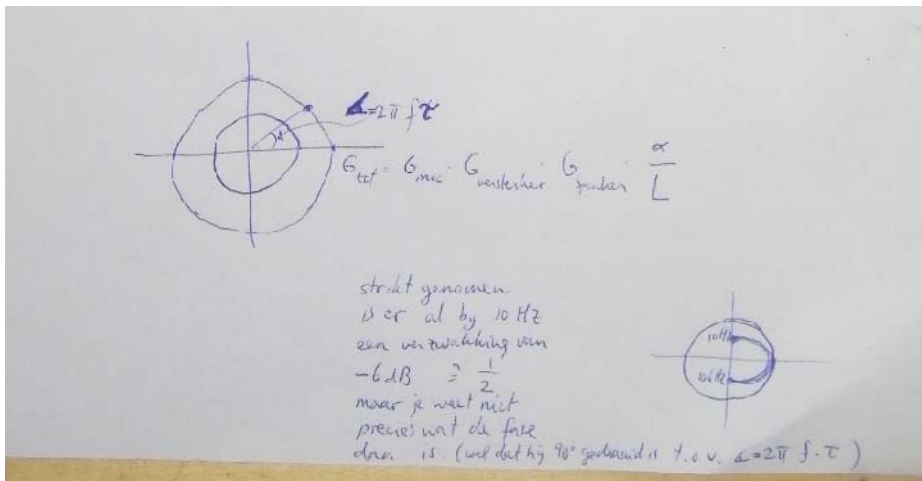 α=2π f τ
G tot = G mic · G versterker · G speaker · α / L
strikt genomen
is er al by 10 Hz
een verzwakking van
-6 dB ≙ 1/2
maar je weet niet
precies wat de fase
dan is. (wel dat hij 90° gedraaid is t.o.v. α=2π f·τ )
10Hz
10kHz